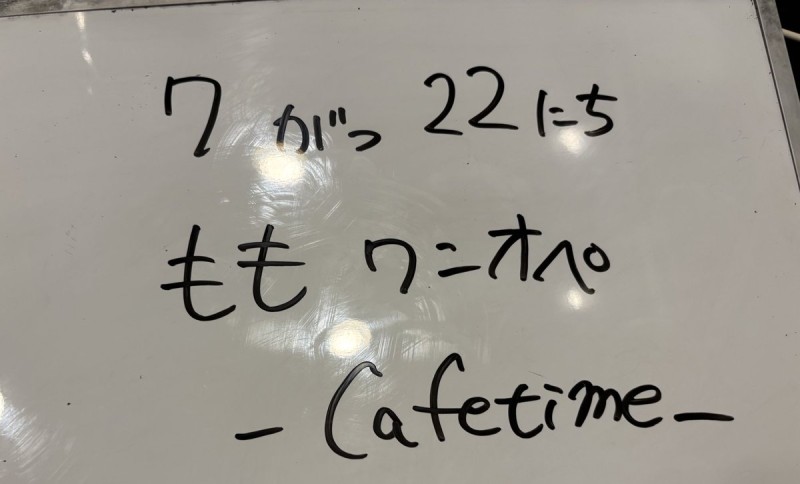 7がつ22にち
ももワンオペ
-Cafetime-